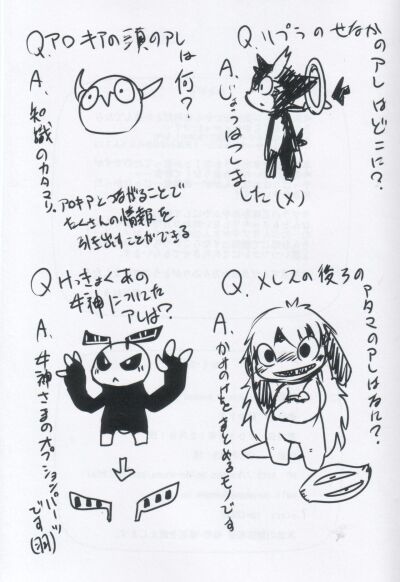 Q.アロキアの頭のアレは何?
A、知識のカタマリ。
アロキアとつながることで
たくさんの情報を
引き出すことができる
Q.リプラのせなかのアレはどこに?
A、じょうはつしました(×)
Q.けっきょくあの
牛神についてた
アレは?
A、牛神さまのオプションパーツです(羽)
Q.メレスの後ろのアタマのアレはなに?
A、かみのけをまとめるモノです